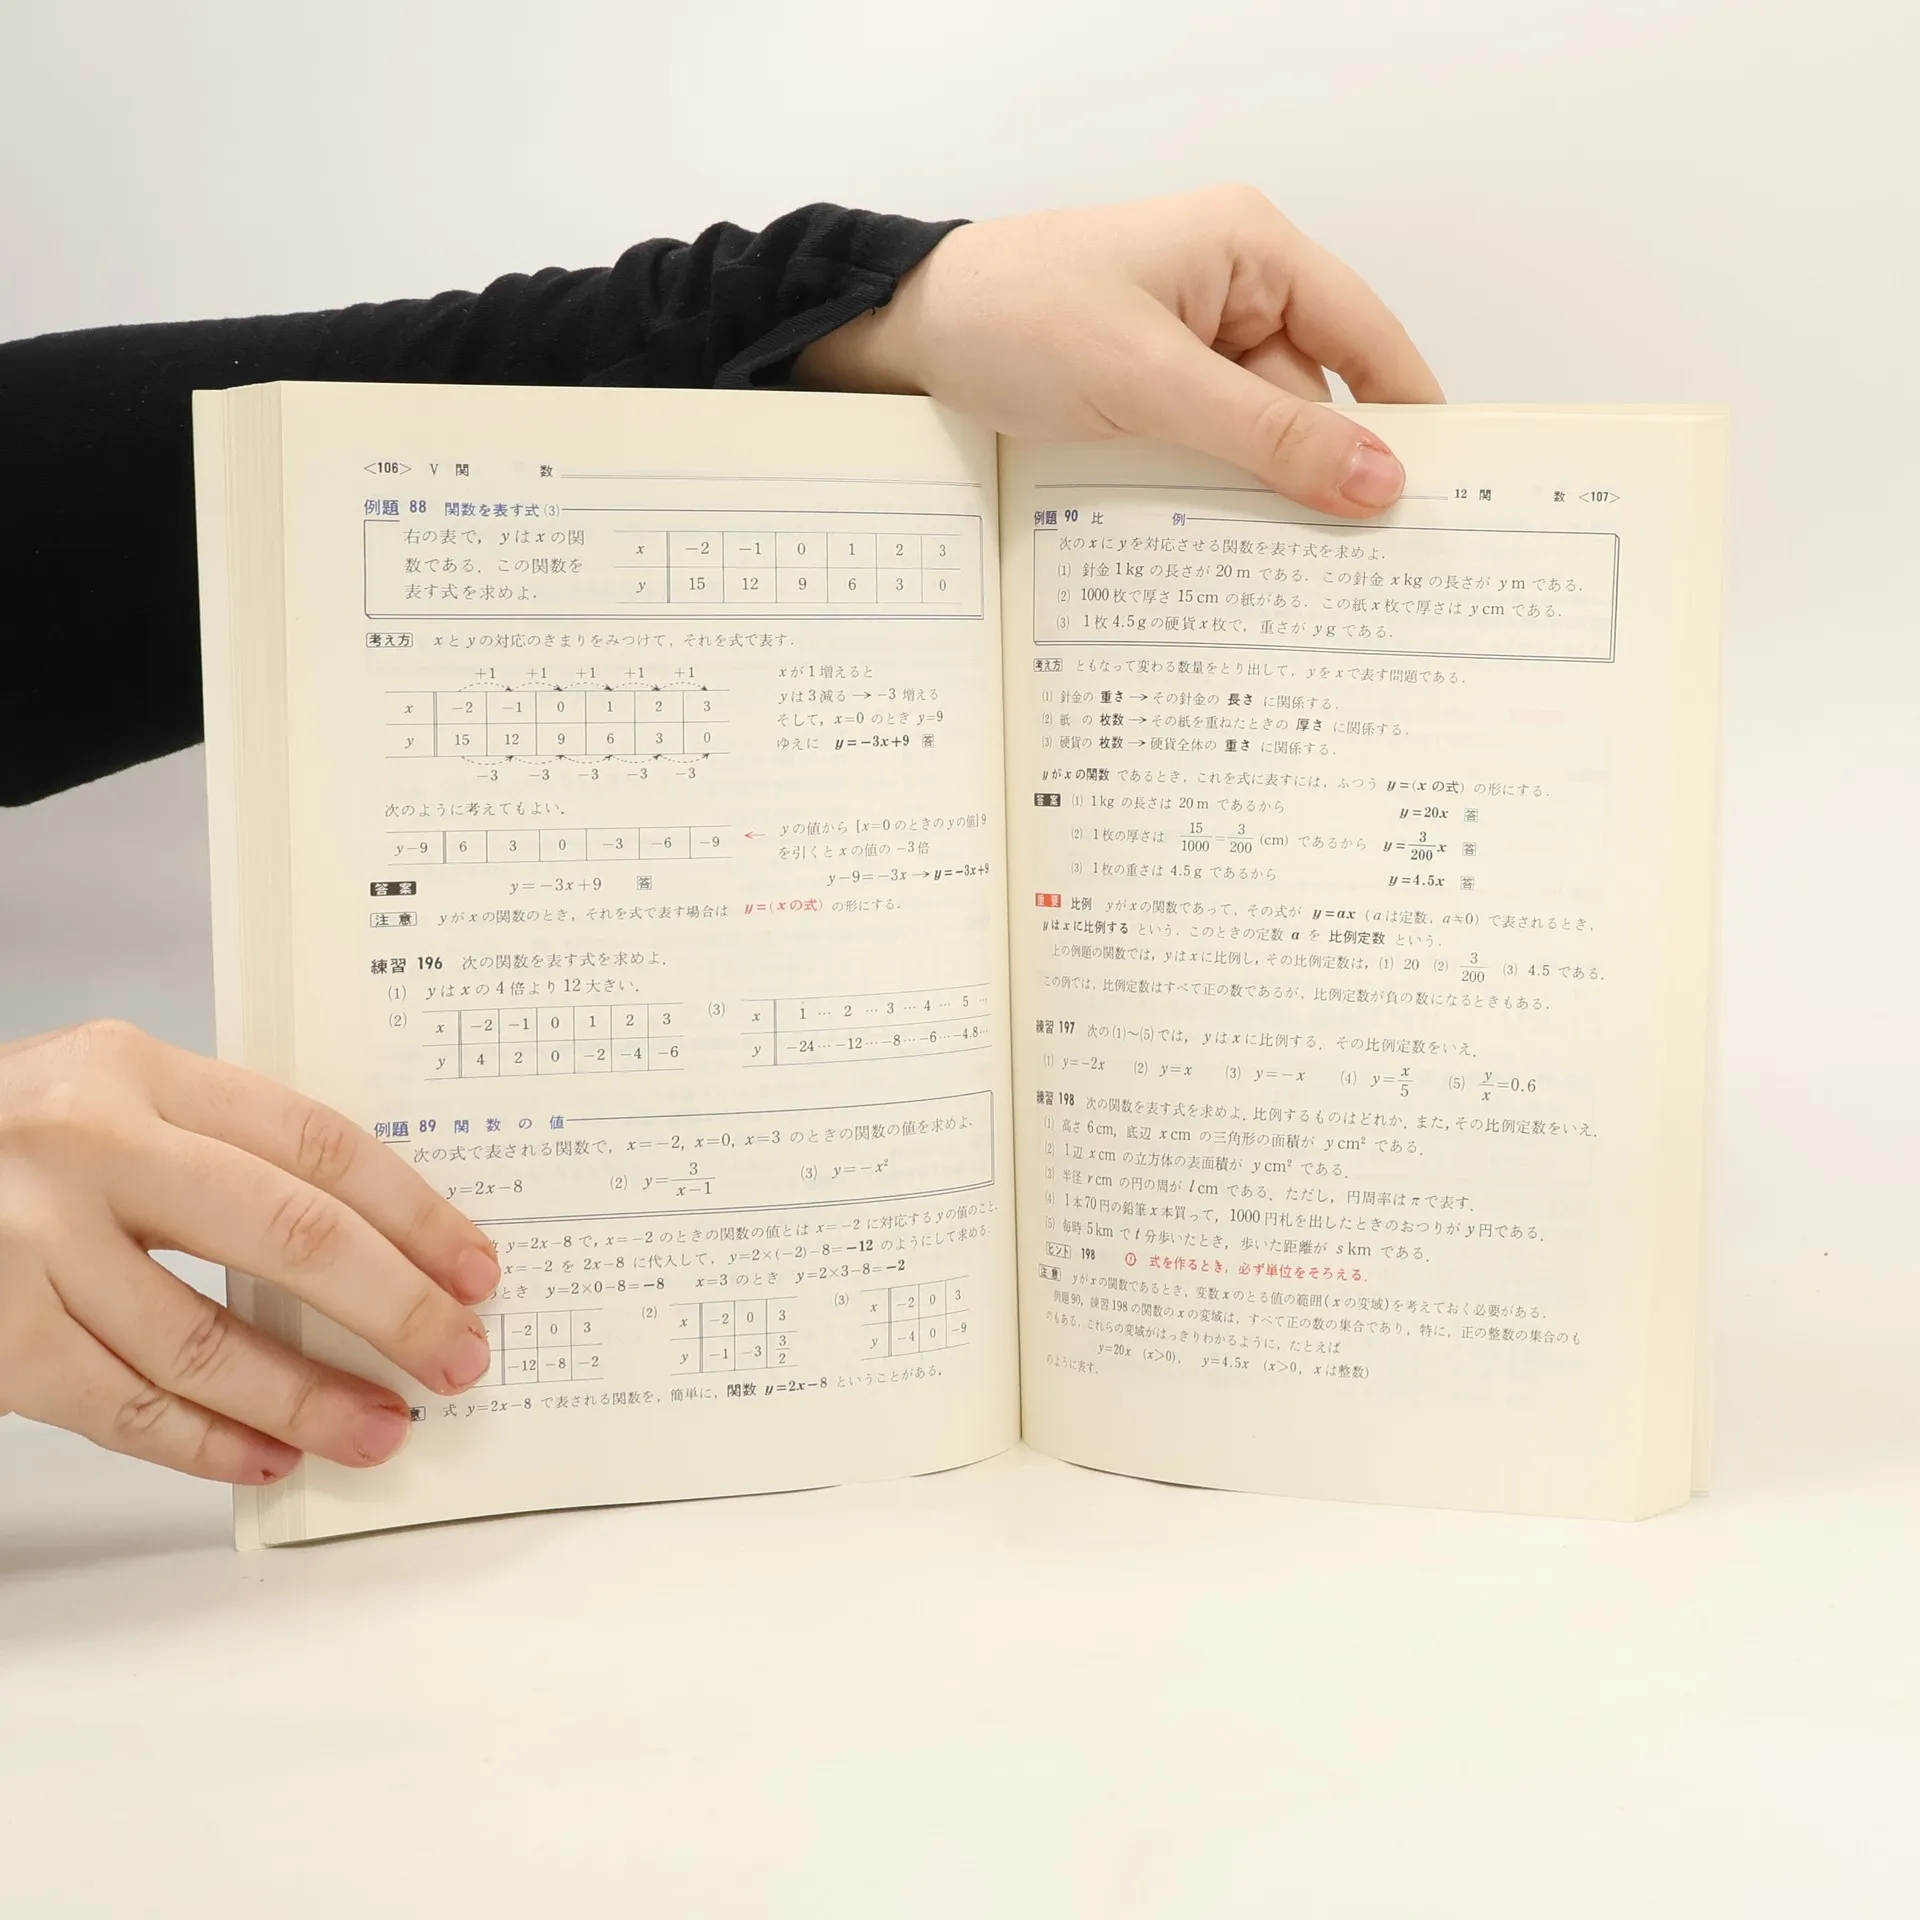 <106> V 関 数
例題 88 関数を表す式(3)
右の表で, yはxの関
数である. この関数を
表す式を求めよ.
x −2 −1 0 1 2 3
y 15 12 9 6 3 0
考え方 xとyの対応のきまりをみつけて, それを式で表す.
+1 +1 +1 +1 +1
x −2 −1 0 1 2 3
y 15 12 9 6 3 0
−3 −3 −3 −3 −3
xが1増えると
yは3減る→−3増える
そして, x=0のとき y=9
ゆえに y=−3x+9 答
次のように考えてもよい.
y−9 6 3 0 −3 −6 −9
← yの値から[x=0のときのyの値]9
を引くとxの値の−3倍
y−9=−3x→y=−3x+9
答案 y=−3x+9 答
注意 yがxの関数のとき, それを式で表す場合は y=(xの式) の形にする.
練習 196 次の関数を表す式を求めよ.
(1) yはxの4倍より12大きい.
(2) x −2 −1 0 1 2 3
y 4 2 0 −2 −4 −6
(3) x 1 … 2 … 3 … 4 … 5 …
y −24…−12…−8…−6…−4.8…
例題 89 関数の値
次の式で表される関数で, x=−2, x=0, x=3 のときの関数の値を求めよ.
y=2x−8 (2) y=3/(x−1) (3) y=−x²
y=2x−8で, x=−2のときの関数の値とはx=−2に対応するyの値のこと.
x=−2 を 2x−8 に代入して, y=2×(−2)−8=−12 のようにして求める.
とき y=2×0−8=−8 x=3のとき y=2×3−8=−2
−2 0 3
−12 −8 −2
(2) x −2 0 3
y −1 −3 3/2
(3) x −2 0 3
y −4 0 −9
式 y=2x−8 で表される関数を, 簡単に, 関数 y=2x−8 ということがある.
12 関 数 <107>
例題 90 比 例
次のxにyを対応させる関数を表す式を求めよ.
(1) 針金1kgの長さが20mである. この針金xkgの長さがymである.
(2) 1000枚で厚さ15cmの紙がある. この紙x枚で厚さはycmである.
(3) 1枚4.5gの硬貨x枚で, 重さがygである.
考え方 ともなって変わる数量をとり出して, yをxで表す問題である.
(1) 針金の 重さ→その針金の 長さ に関係する.
(2) 紙 の 枚数→その紙を重ねたときの 厚さ に関係する.
(3) 硬貨の 枚数→硬貨全体の 重さ に関係する.
yがxの関数 であるとき, これを式に表すには, ふつう y=(xの式) の形にする.
答案 (1) 1kgの長さは20mであるから y=20x 答
(2) 1枚の厚さは 15/1000=3/200(cm) であるから y=3/200x 答
(3) 1枚の重さは4.5gであるから y=4.5x 答
重要 比例 yがxの関数であって, その式が y=ax (aは定数, a≠0) で表されるとき,
yはxに比例する という. このときの定数 a を 比例定数 という.
上の例題の関数では, yはxに比例し, その比例定数は, (1) 20 (2) 3/200 (3) 4.5 である.
この例では, 比例定数はすべて正の数であるが, 比例定数が負の数になるときもある.
練習 197 次の(1)〜(5)では, yはxに比例する. その比例定数をいえ.
(1) y=−2x (2) y=x (3) y=−x (4) y=x/5 (5) y/x=0.6
練習 198 次の関数を表す式を求めよ. 比例するものはどれか. また, その比例定数をいえ.
(1) 高さ6cm, 底辺xcmの三角形の面積がycm²である.
(2) 1辺xcmの立方体の表面積がycm²である.
(3) 半径rcmの円の周がlcmである. ただし, 円周率はπで表す.
(4) 1本70円の鉛筆x本買って, 1000円札を出したときのおつりがy円である.
(5) 毎時5kmでt分歩いたとき, 歩いた距離がskmである.
ヒント 198 ① 式を作るとき, 必ず単位をそろえる.
注意 yがxの関数であるとき, 変数xのとる値の範囲(xの変域)を考えておく必要がある.
例題90, 練習198の関数のxの変域は, すべて正の数の集合であり, 特に, 正の整数の集合のも
のもある. これらの変域がはっきりわかるように, たとえば
y=20x (x>0), y=4.5x (x>0, xは整数)
のように表す.